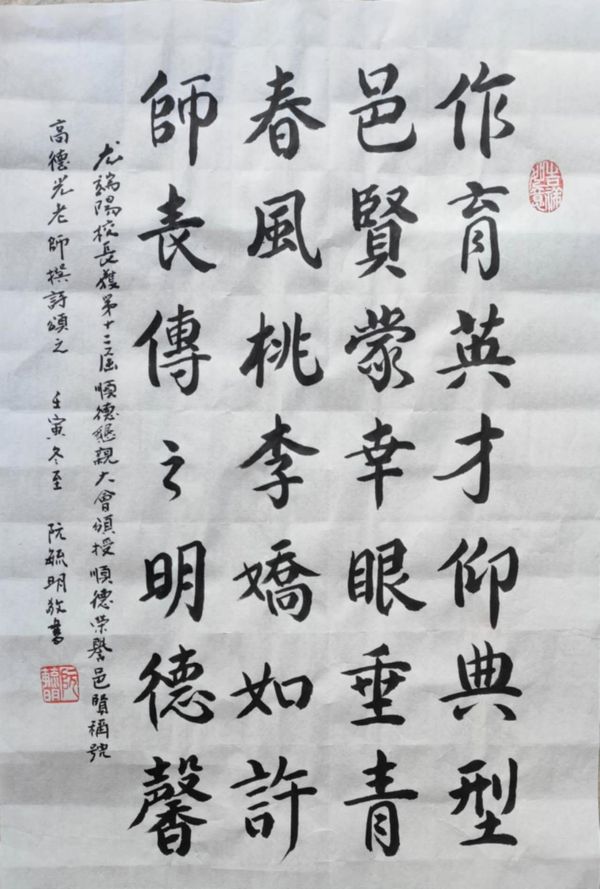 作育英才仰典型
邑賢蒙幸眼垂青
春風桃李嬌如許
師表傳之明德馨
尤端陽校長獲第十二屆順德懇親大會頒授順德榮譽邑賢稱號
高德光老師撰詩頌之 壬寅冬至 阮毓明敬書
阮毓明